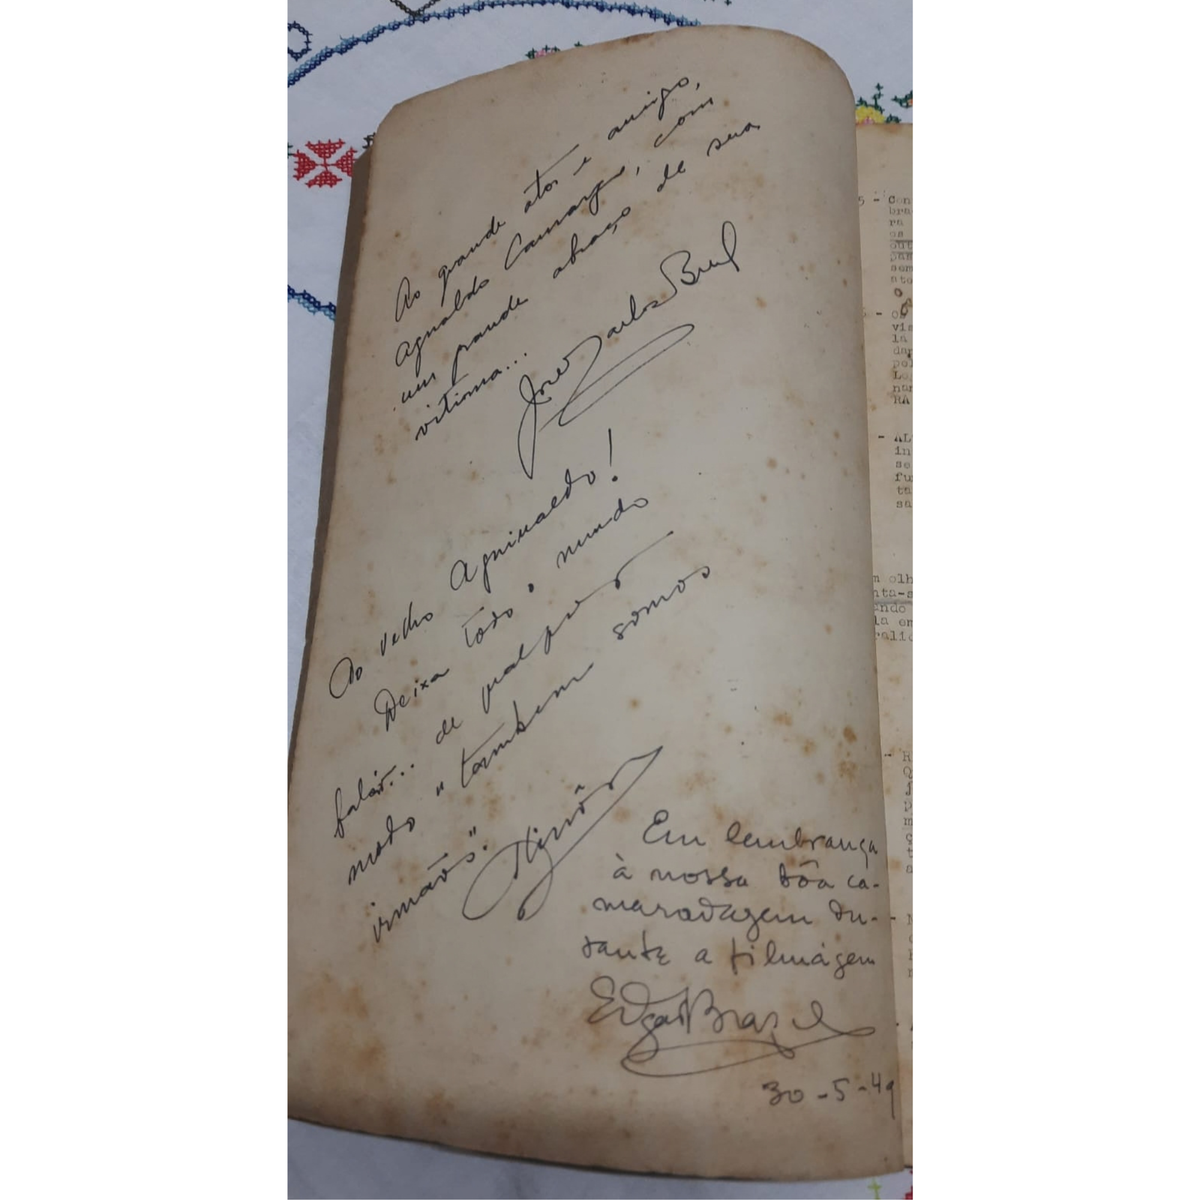 Ao grande ator e amigo,
Agnaldo Camargo, com
um grande abraço de sua
vitima...
José Carlos Burle
Ao velho Aguinaldo!
Deixa todo o mundo
falar... de qualquer
modo "tambem somos
irmãos".
Em lembrança
à nossa bôa ca-
maradagem du-
rante a filmagem
Edgar Brazil
30-5-49
5 - Con
bra
ra
os
out
pas
sem
ate
o
- Os
vis
lá
dan
pol
Lo
nan
RA
- AL
in
se
fu
ta
sa
m olh
nta-s
ando
la em
ralid
- R
Q
j
p
m
ç
t
a
- N